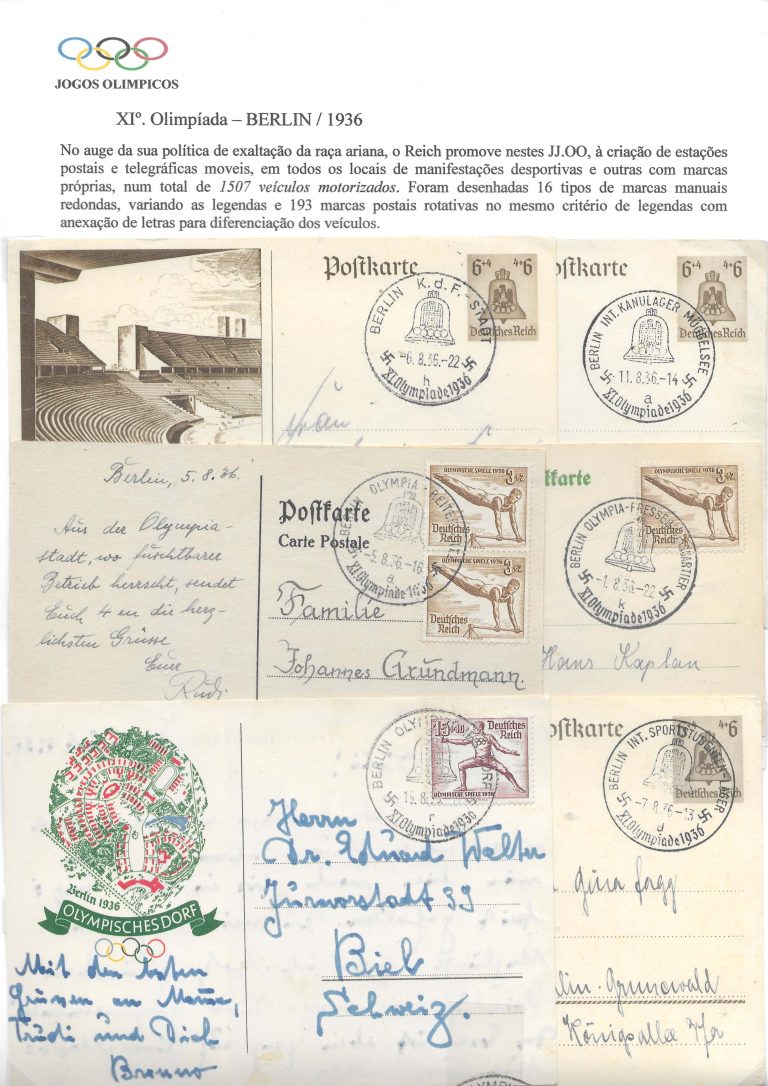 JOGOS OLIMPICOS
XIº. Olimpíada – BERLIN / 1936
No auge da sua política de exaltação da raça ariana, o Reich promove nestes JJ.OO, à criação de estações
postais e telegráficas moveis, em todos os locais de manifestações desportivas e outras com marcas
próprias, num total de 1507 veículos motorizados. Foram desenhadas 16 tipos de marcas manuais
redondas, variando as legendas e 193 marcas postais rotativas no mesmo critério de legendas com
anexação de letras para diferenciação dos veículos.
Postkarte
6+4 4+6
Deutsches Reich
BERLIN K.d.F.-STADT
-6.8.36.-22
h
XI.Olympiade1936
Frau
ostkarte
6+4 4+6
Deutsches Reich
BERLIN INT. KANULAGER MÜGGELSEE
11.8.36.-14
a
XI.Olympiade1936
Berlin, 5.8.36.
Aus der Olympia-
stadt, wo furchtbarer
Betrieb herrscht, sendet
Euch 4 en die herz-
lichsten Grüsse
Eure
Rudi
Postkarte
Carte Postale
OLYMPISCHE SPIELE 1936
3+2
Deutsches
Reich
OLYMPISCHE SPIELE 1936
3+2
Deutsches
Reich
BERLIN OLYMPIA-REITER
-5.8.36.-16
a
XI.Olympiade 1936
Familie
Johannes Grundmann.
tkarte
OLYMPISCHE SPIELE 1936
3+2
Deutsches
Reich
BERLIN OLYMPIA-PRESSE QUARTIER
-1.8.36.-22
k
XI.Olympiade1936
Hans Kaplan
Berlin 1936
OLYMPISCHES DORF
Mit den besten
Grüssen an Mama,
Trudi und Dich
Brenno
15+10
Deutsches
Reich
OLYMPISCHE SPIELE 1936
BERLIN OLYMP DORF
XI.Olympiade1936
Herrn
Dr. Eduard Walter
39
Biel
Schweiz.
ostkarte
4+6
Deutsches Reich
BERLIN INT. SPORTSTUDENTEN-LAGER
-7.8.36.-13
d
XI.Olympiade1936
lin-Grunewald
Königsallee